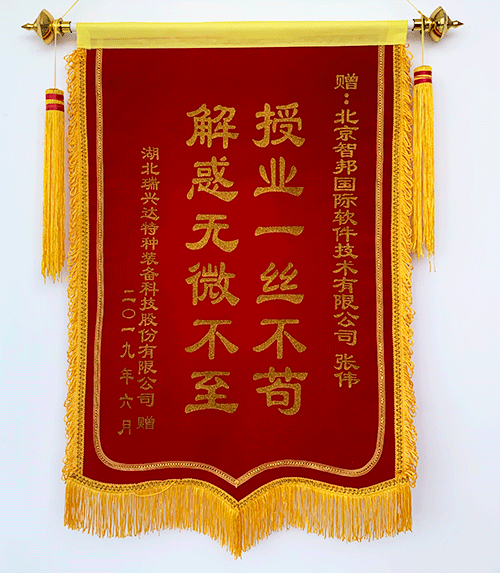 赠：北京智邦国际软件技术有限公司 张伟
授业一丝不苟
解惑无微不至
湖北瑞兴达特种装备科技股份有限公司 赠
二〇一九年六月